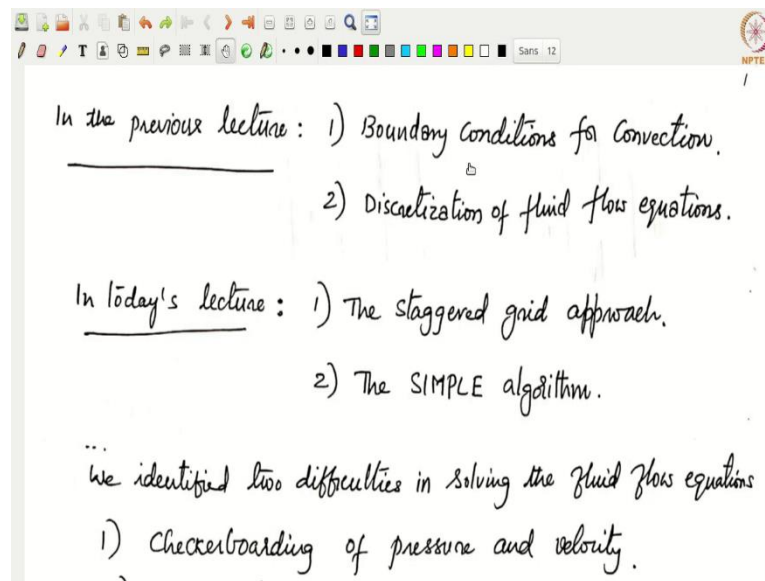 T
Sans 12
NPTE
1
In the previous lecture : 1) Boundary Conditions for Convection.
2) Discretization of fluid flow equations.
In today's lecture : 1) The staggered grid approach.
2) The SIMPLE algorithm.
...
We identified two difficulties in solving the fluid flow equations
1) Checkerboarding of pressure and velocity.